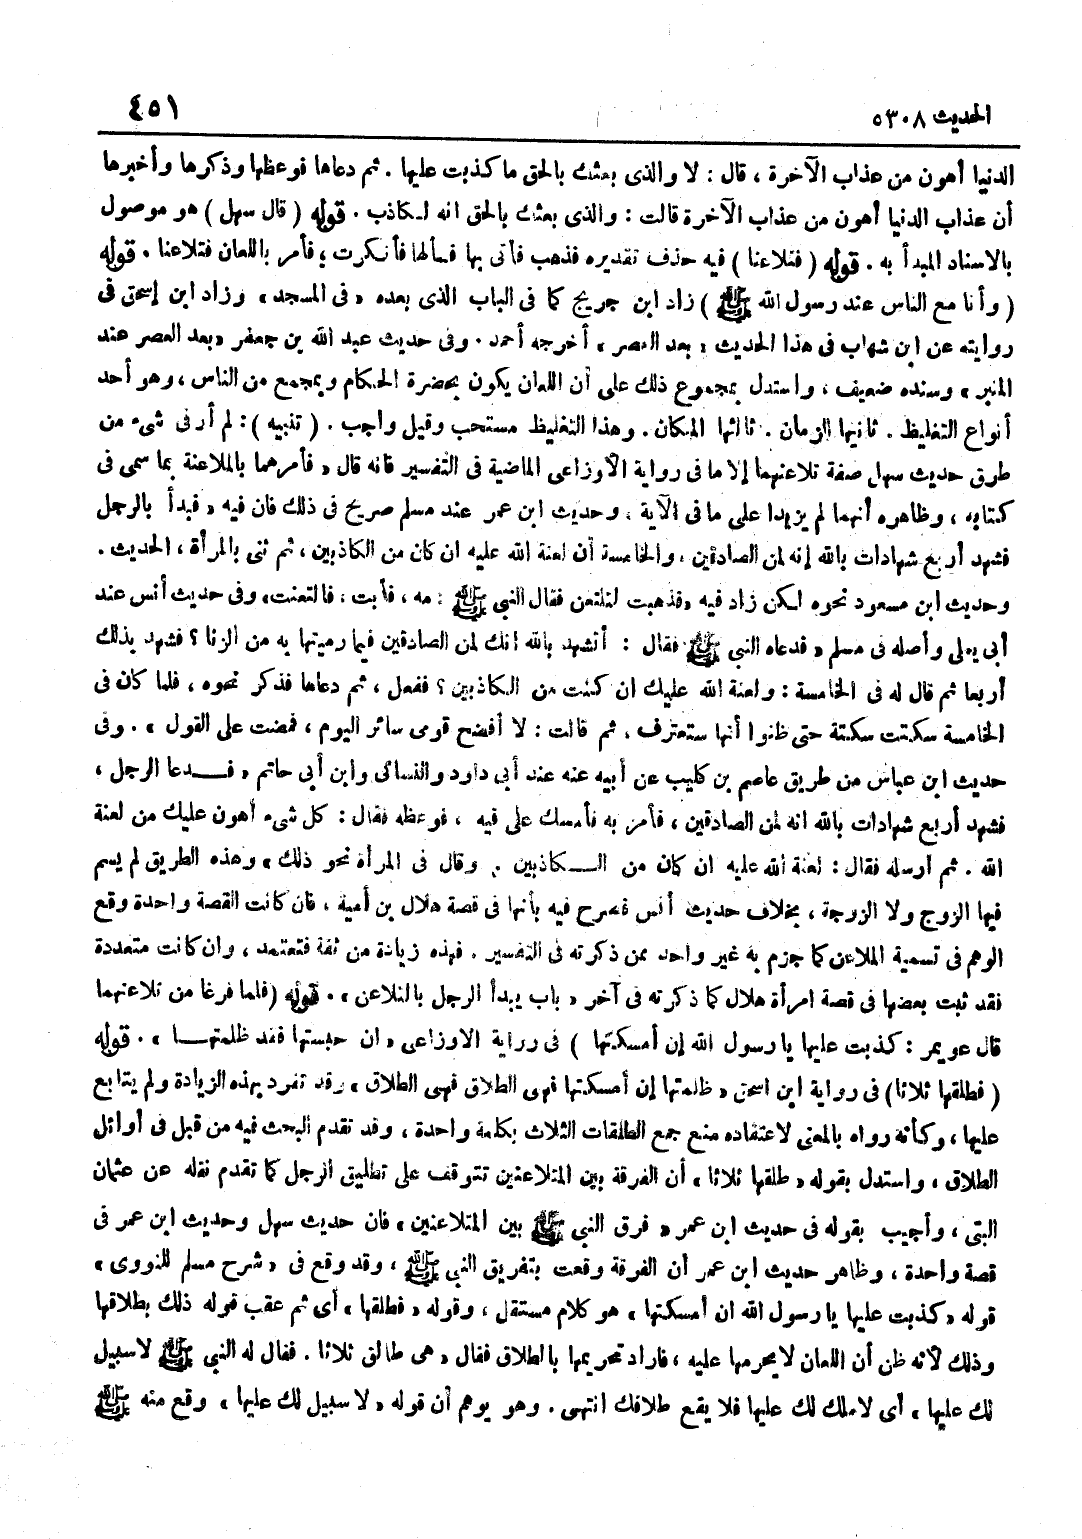 الحديث ٥٣٠٨
٤٥١
الدنيا أهون من عذاب الآخرة ، قال : لا والذى بعثك بالحق ما كذبت عليها . ثم دعاها فوعظها وذكرها وأخبرها
أن عذاب الدنيا أهون من عذاب الآخرة قالت : والذى بعثك بالحق انه لكاذب . قوله ( قال سهل ) هو موصول
بالاسناد المبدأ به . قوله ( فتلاعنا ) فيه حذف تقديره فذهب فأتى بها فسألها فأنكرت ، فأمر باللعان فتلاعنا . قوله
( وأنا مع الناس عند رسول الله ﷺ ) زاد ابن جريج كما فى الباب الذى بعده « فى المسجد » وزاد ابن إسحق فى
روايته عن ابن شهاب فى هذا الحديث « بعد العصر » أخرجه أحمد . وفى حديث عبد الله بن جعفر « بعد العصر عند
المنبر » وسنده ضعيف ، واستدل بمجموع ذلك على أن اللعان يكون بحضرة الحكام وبمجمع من الناس ، وهو أحد
أنواع التغليظ . ثانيها الزمان . ثالثها المكان . وهذا التغليظ مستحب وقيل واجب . ( تنبيه ) : لم أر فى شىء من
طرق حديث سهل صفة تلاعنهما إلا ما فى رواية الأوزاعى الماضية فى التفسير فانه قال « فأمرهما بالملاعنة بما سمى فى
كتابه ، وظاهره أنهما لم يزيدا على ما فى الآية ، وحديث ابن عمر عند مسلم صريح فى ذلك فان فيه « فبدأ بالرجل
فشهد أربع شهادات بالله إنه لمن الصادقين ، والخامسة أن لعنة الله عليه ان كان من الكاذبين ، ثم ثنى بالمرأة ، الحديث .
وحديث ابن مسعود نحوه لكن زاد فيه « فذهبت لتلتعن فقال النبي ﷺ : مه ، فأبت ، فالتعنت » وفى حديث أنس عند
أبى يعلى وأصله فى مسلم « فدعاه النبي ﷺ فقال : أتشهد بالله انك لمن الصادقين فيما رميتها به من الزنا ؟ فشهد بذلك
أربعا ثم قال له فى الخامسة : ولعنة الله عليك ان كنت من الكاذبين ؟ ففعل ، ثم دعاها فذكر نحوه ، فلما كان فى
الخامسة سكتت سكتة حتى ظنوا أنها ستعترف ، ثم قالت : لا أفضح قومى سائر اليوم ، فمضت على القول » . وفى
حديث ابن عباس من طريق عاصم بن كليب عن أبيه عنه عند أبى داود والنسائى وابن أبي حاتم « فـدعا الرجل ،
فشهد أربع شهادات بالله انه لمن الصادقين ، فأمر به فأمسك على فيه ، فوعظه فقال : كل شىء أهون عليك من لعنة
الله . ثم أرسله فقال : لعنة الله عليه ان كان من الـكاذبين . وقال فى المرأة نحو ذلك » وهذه الطريق لم يسم
فيها الزوج ولا الزوجة ، بخلاف حديث أنس فصرح فيه بأنها فى قصة هلال بن أمية ، فان كانت القصة واحدة وقع
الوهم فى تسمية الملاعن كما جزم به غير واحد ممن ذكرته فى التفسير . فهذه زيادة من ثقة فتعتمد ، وان كانت متعددة
فقد ثبت بعضها فى قصة امرأة هلال كما ذكرته فى آخر « باب يبدأ الرجل بالتلاعن » . قوله ( فلما فرغا من تلاعنهما
قال عويمر : كذبت عليها يا رسول الله إن أمسكتها ) فى رواية الاوزاعى « ان حبستها فقد ظلمتهـا » . قوله
( فطلقها ثلاثا ) فى رواية ابن اسحق « ظلمتها إن أمسكتها فهى الطلاق فهى الطلاق » وقد تفرد بهذه الزيادة ولم يتابع
عليها ، وكأنه رواه بالمعنى لاعتقاده منع جمع الطلقات الثلاث بكلمة واحدة ، وقد تقدم البحث فيه من قبل فى أوائل
الطلاق ، واستدل بقوله « طلقها ثلاثا » أن الفرقة بين المتلاعنين تتوقف على تطليق الرجل كما تقدم نقله عن عثمان
البتى ، وأجيب بقوله فى حديث ابن عمر « فرق النبي ﷺ بين المتلاعنين » فان حديث سهل وحديث ابن عمر فى
قصة واحدة ، وظاهر حديث ابن عمر أن الفرقة وقعت بتفريق النبي ﷺ ، وقد وقع فى « شرح مسلم للنووى »
قوله « كذبت عليها يا رسول الله ان أمسكتها » هو كلام مستقل ، وقوله « فطلقها » أى ثم عقب قوله ذلك بطلاقها
وذلك لأنه ظن أن اللعان لا يحرمها عليه ، فاراد تحريمها بالطلاق فقال « هى طالق ثلاثا . فقال له النبي ﷺ لا سبيل
لك عليها » أى لا ملك لك عليها فلا يقع طلاقك انتهى . وهو يوهم أن قوله « لا سبيل لك عليها » وقع منه ﷺ